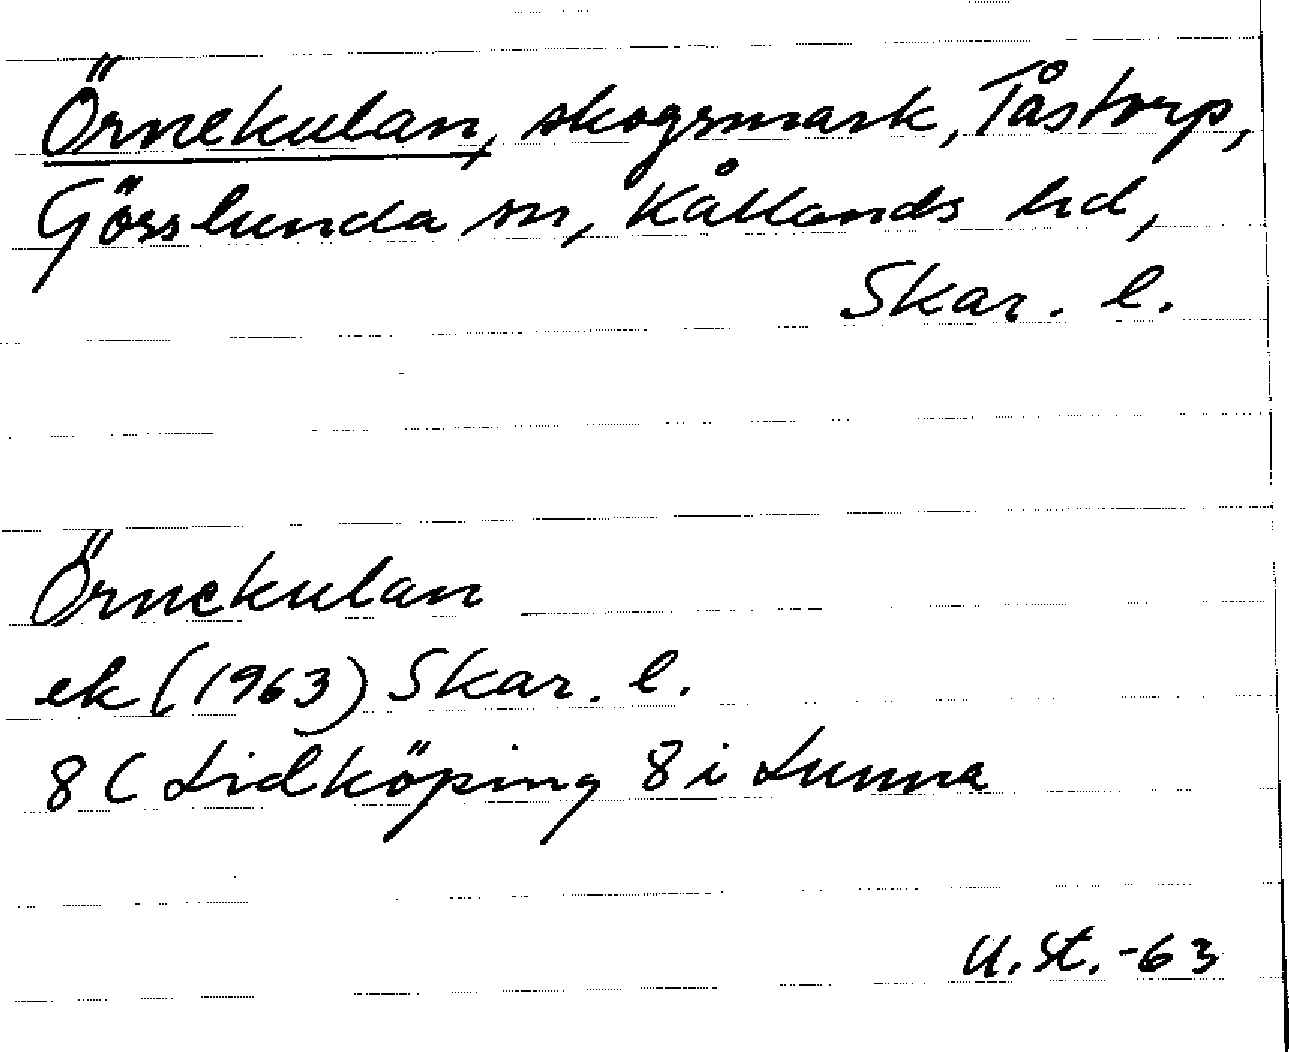 Örnekulan, skogsmark, Tåstorp,
Gösslunda sn, Kållands hd,
Skar. l.
Örnekulan
ek (1963) Skar. l.
8 C Lidköping 8 i Lunna
U. St. -63